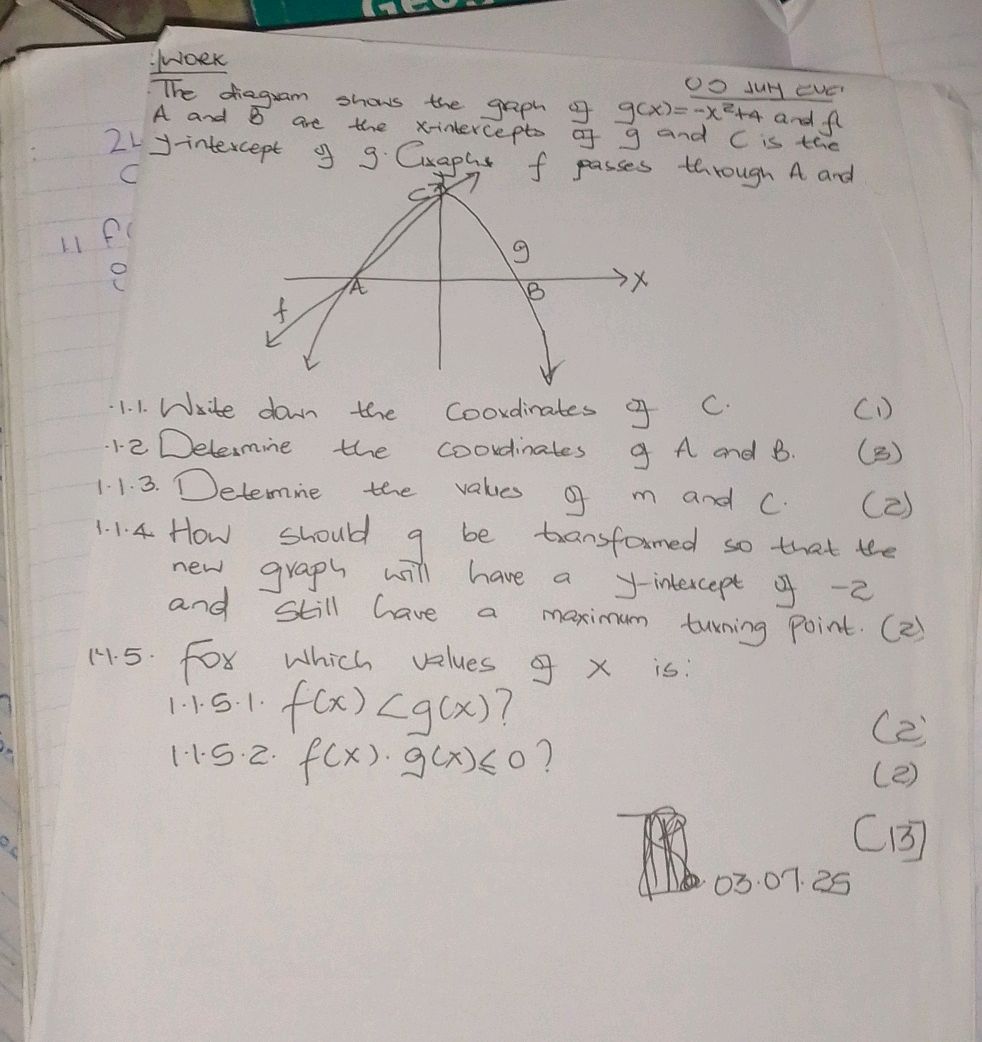 GEO
WORK
03 JULY
The diagram shows the graph of g(x)=-x²+4 and
A and B are the x-intercepts of g and C is the
y-intercept of g. Graphs f passes through A and
C
g
x
A
B
f
.1.1. Write down the coordinates of C. (1)
.1.2 Determine the coordinates of A and B. (3)
1.1.3. Determine the values of m and C. (2)
1.1.4. How should g be transformed so that the
new graph will have a y-intercept of -2
and still have a maximum turning point. (2)
1.1.5. For which values of x is:
1.1.5.1. f(x) < g(x)? (2)
1.1.5.2. f(x). g(x) ≤ 0? (2)
[13]
03.07.25